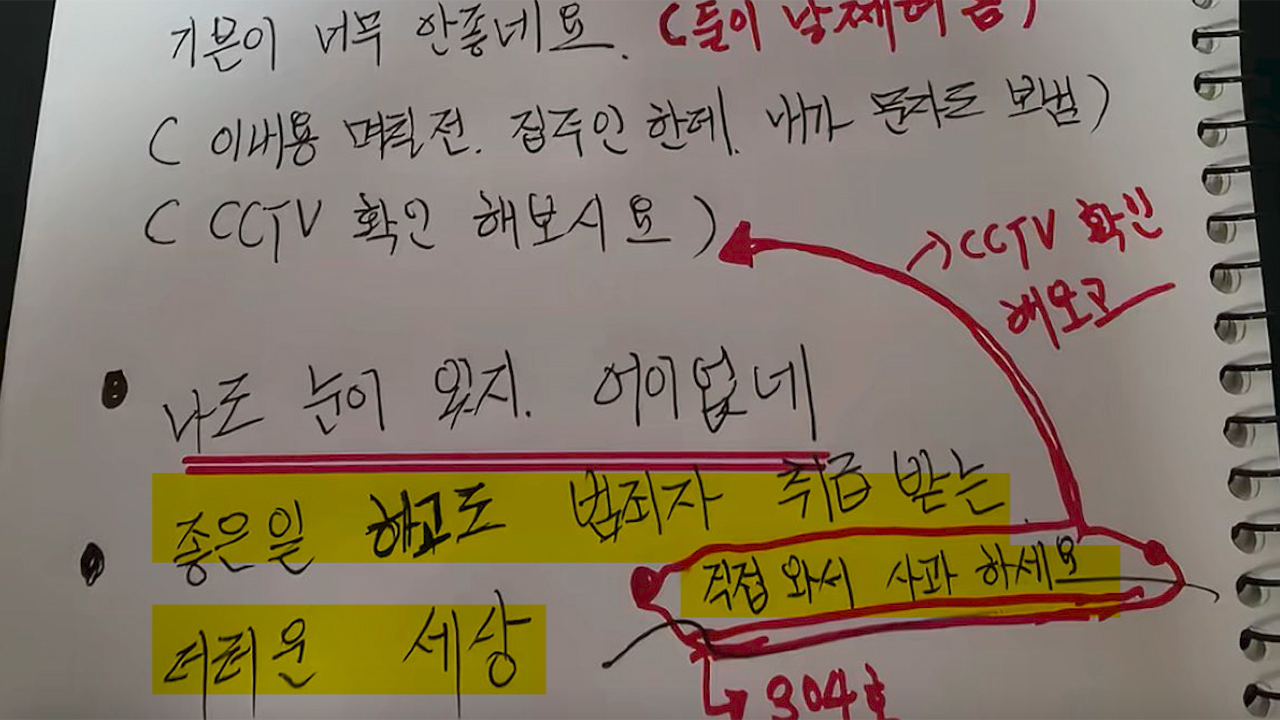 기분이 너무 안좋네요. (둘이 날 째려 봄)
(이내용 며칠전. 집주인 한테. 내가 문자도 보냄)
(CCTV 확인 해보시요)
→ CCTV 확인
해보고
나도 눈이 있지. 어이없네
좋은일 하고도 범죄자 취급 받는
직접 와서 사과 하세요
더러운 세상
304호